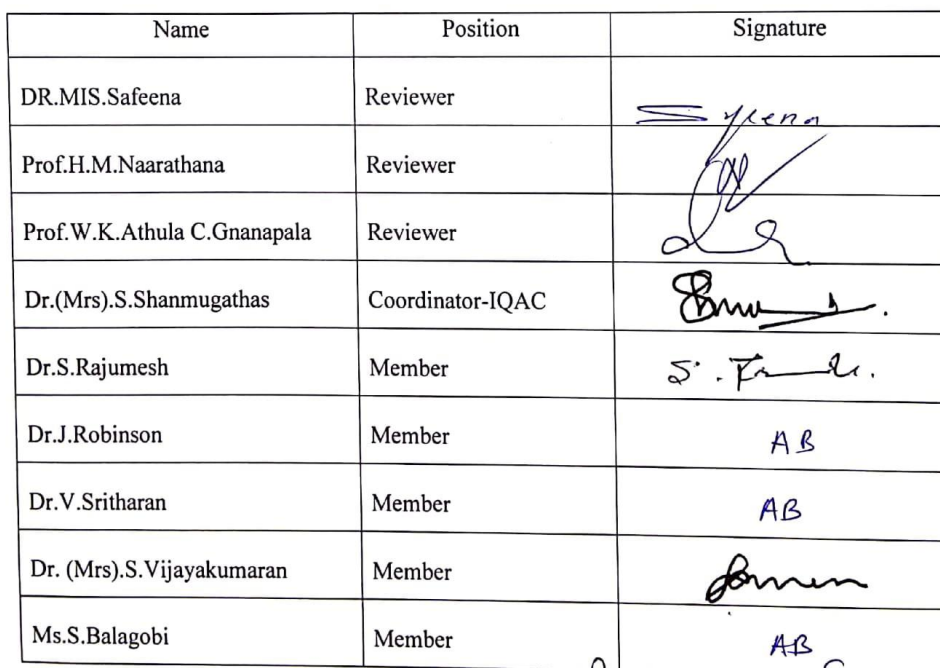 Name Position Signature
DR.MIS.Safeena Reviewer
Prof.H.M.Naarathana Reviewer
Prof.W.K.Athula C.Gnanapala Reviewer
Dr.(Mrs).S.Shanmugathas Coordinator-IQAC
Dr.S.Rajumesh Member
Dr.J.Robinson Member AB
Dr.V.Sritharan Member AB
Dr. (Mrs).S.Vijayakumaran Member
Ms.S.Balagobi Member AB